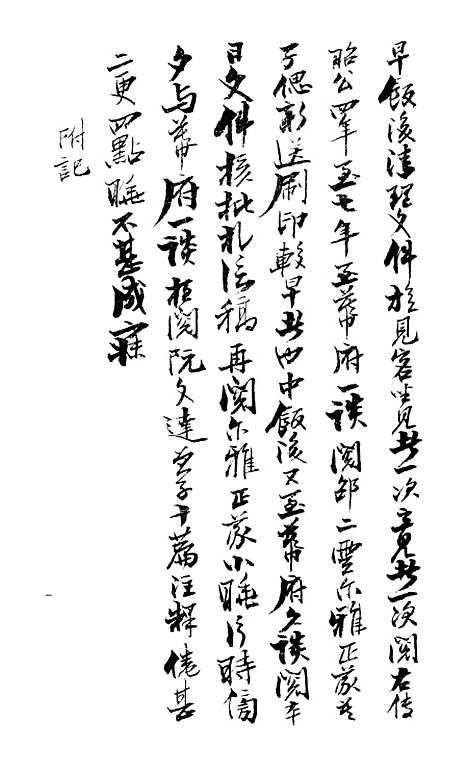 早飯後清理文件旋見客坐見者一次立見者一次閱左传
昭公四年至七年至幕府一談閱邵二雲尔雅正義莫
子偲新送刷印較早者也中飯後又至幕府久談閱本
日文件核批札信稿再閱尔雅正義小睡片時傍
夕与幕府一談夜閱阮文達曾子十篇注釋倦甚
二更四點睡不甚成寐
附記